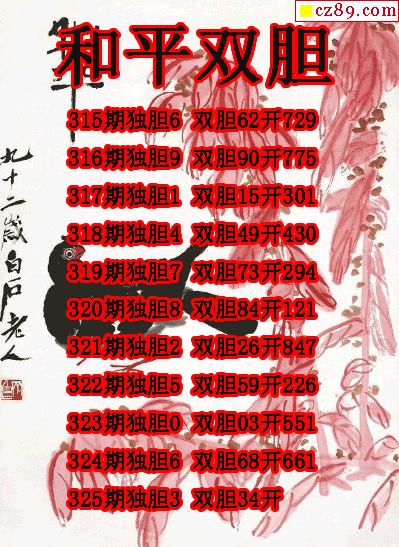 cz89.com
和平双胆
315期独胆6 双胆62开729
316期独胆9 双胆90开775
317期独胆1 双胆15开301
318期独胆4 双胆49开430
319期独胆7 双胆73开294
320期独胆8 双胆84开121
321期独胆2 双胆26开847
322期独胆5 双胆59开226
323期独胆0 双胆03开551
324期独胆6 双胆68开661
325期独胆3 双胆34开
九十二岁白石老人